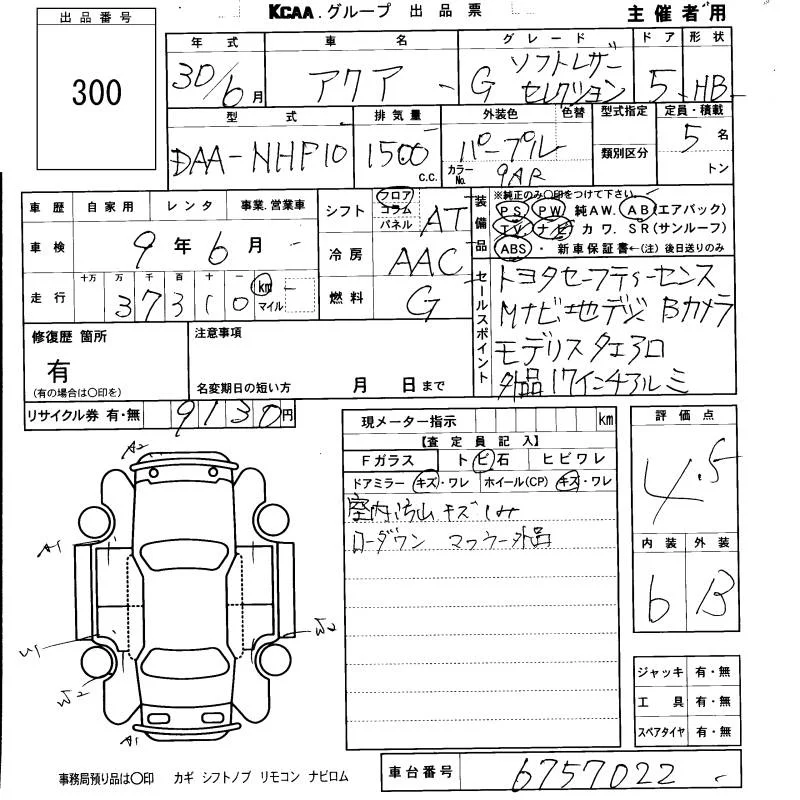 KCAA.グループ 出品票
主催者用
出品番号
300
年式 車名 グレード ドア 形状
30/6月 アクア G ソフトレザーセレクション 5 HB
型式 排気量 外装色 色替 型式指定 定員・積載
DAA-NHP10 1500 C.C. パープル 類別区分 5名
カラーNo. 9AR トン
車歴 自家用 レンタ 事業.営業車
シフト フロア コラム パネル AT
装備品 ※純正のみ〇印をつけて下さい。
PS PW 純AW. AB(エアバック)
TV. ナビ カワ. SR(サンルーフ)
ABS ・ 新車保証書←(注) 後日送りのみ
車検 9年6月
冷房 AAC
走行 十万 万 千 百 十 一
37310 km マイル
燃料 G
セールスポイント
トヨタセーフティーセンス
Mナビ地デジ Bカメラ
モデリスタエアロ
外品17インチアルミ
修復歴 箇所
有
(有の場合は〇印を)
注意事項
名変期日の短い方 月 日まで
リサイクル券 有・無 9130円
現メーター指示 km
【査定員記入】
Fガラス トビ石 ヒビワレ
ドアミラー キズ・ワレ ホイール(CP) キズ・ワレ
室内汚 キズ
ローダウン マフラー外品
評価点
4.5
内装 外装
6 B
A2
A1
U1
W2
W2
A1
ジャッキ 有・無
工具 有・無
スペアタイヤ 有・無
事務局預り品は〇印 カギ シフトノブ リモコン ナビロム
車台番号 6757022